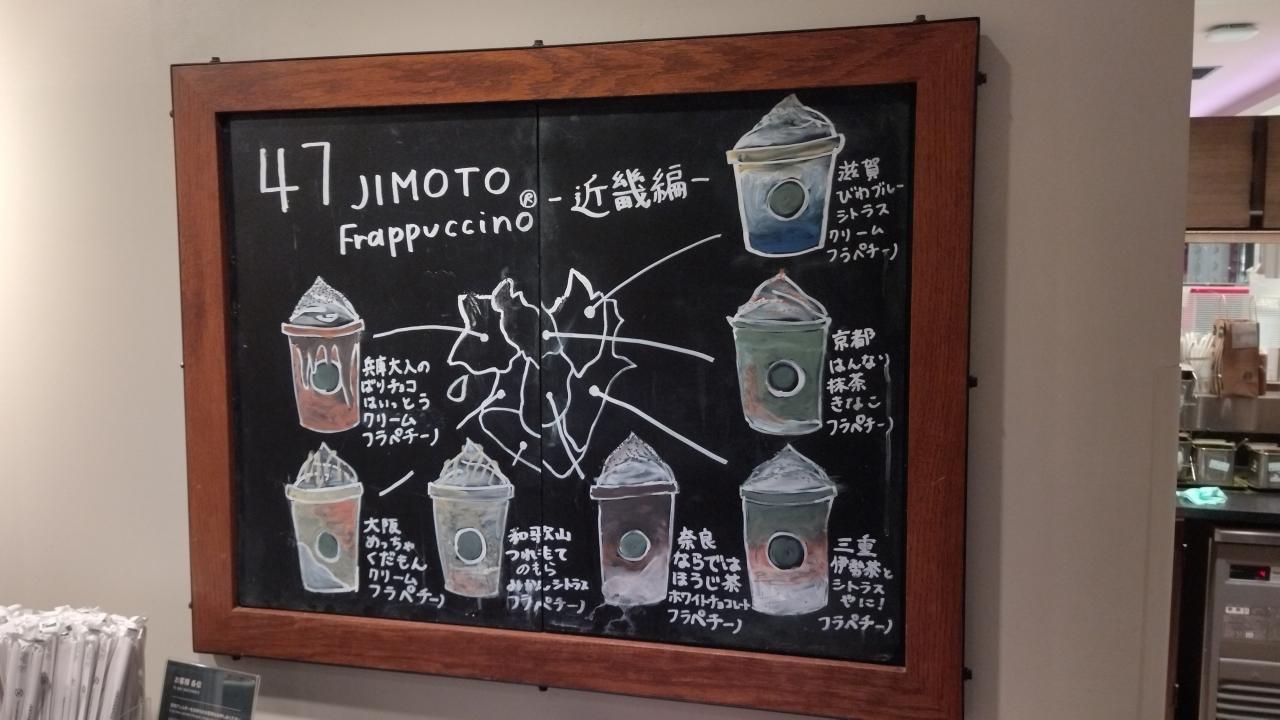 47 JIMOTO
Frappuccino® -近畿編-
滋賀
びわブルー
シトラス
クリーム
フラペチーノ
京都
はんなり
抹茶
きなこ
フラペチーノ
兵庫大人の
ばりチョコ
はいっとう
クリーム
フラペチーノ
大阪
めっちゃ
くだもん
クリーム
フラペチーノ
和歌山
つれもて
のもら
みかんシトラス
フラペチーノ
奈良
ならでは
ほうじ茶
ホワイトチョコレート
フラペチーノ
三重
伊勢茶と
シトラス
やに!
フラペチーノ
お客様各位